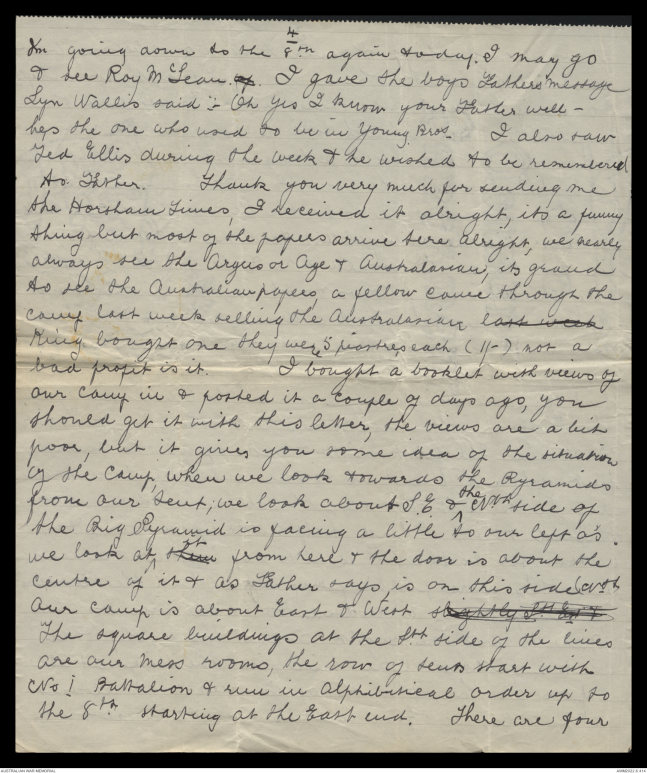 4
Im going down to the 8th again today. I may go
& see Roy McLean. I gave the boys Fathers message
Lyn Wallis said :- Oh yes I know your Father well -
hes the one who used to be in Young Bros. I also saw
Ted Ellis during the week & he wished to be remembered
to Father. Thank you very much for sending me
the Horsham Times, I received it alright, its a funny
thing but most of the papers arrive here alright, we nearly
always see the Argus or Age & Australasian, its grand
to see the Australian papers, a fellow came through the
camp last week selling the Australasian, last week
King bought one they were 5 piastres each (1/-) not a
bad profit is it. I bought a booklet with views of
our camp in & posted it a couple of days ago, you
should get it with this letter, the views are a bit
poor, but it gives you some idea of the situation
of the Camp, when we look towards the Pyramids
from our tent, we look about S.E & the Nth side of
the Big Pyramid is facing a little to our left as
we look at them it from here & the door is about the
centre of it & as Father says, is on this side (Nth
Our camp is about East & West slightly Sth East &
The square buildings at the Sth side of the lines
are our mess rooms, the row of tents start with
No 1 Battalion & run in alphibitical order up to
the 8th starting at the East end. There are four
AUSTRALIAN WAR MEMORIAL